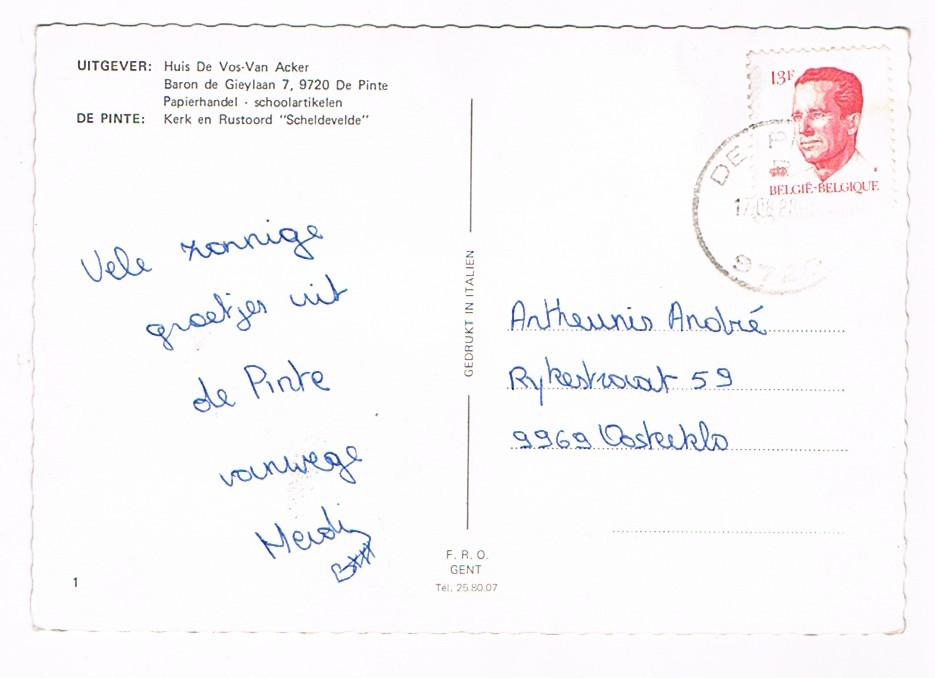 UITGEVER: Huis De Vos-Van Acker
Baron de Gieylaan 7, 9720 De Pinte
Papierhandel - schoolartikelen
DE PINTE: Kerk en Rustoord "Scheldevelde"
13F
BELGIË-BELGIQUE
DE
9720
Vele zonnige
groetjes uit
de Pinte
vanwege
GEDRUKT IN ITALIEN
Antheunis André
Rykestraat 59
9969 Oosteeklo
F. R. O.
GENT
Tél. 25.80.07
1